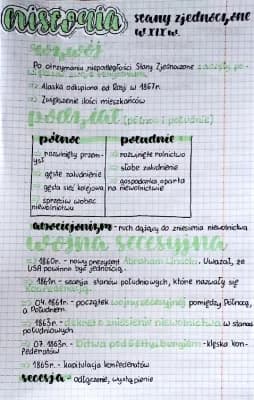 historia
stany zjednoczone
w XIX w.
rozwój
Po otrzymaniu niepodległości Stany Zjednoczone
→ Alaska odkupiona od Rosji w 1867r.
→ Zwiększenie ilości mieszkańców
podział (północ i południe)
północ południe
→ rozwinięty przemysł → rozwinięte rolnictwo
→ gęste zaludnienie → słabe zaludnienie
→ gęsta sieć kolejowa → gospodarka oparta na niewolnictwie
→ sprzeciw wobec niewolnictwa
abolicjonizm - ruch dążący do zniesienia niewolnictwa
wojna secesyjna
→ 1860r. - nowy prezydent Abraham Lincoln. Uważał, że
USA powinno być jednością.
→ 1861r - secesja stanów południowych, które nazwały się
Konfederacją
→ 04.1861r. - początek wojny secesyjnej pomiędzy Północą,
a Południem
→ 1863r. - dekret o zniesieniu niewolnictwa w stanach
południowych
→ 07.1863r. - Bitwa pod Gettysburgiem - klęska konfederatów
→ 1865r. - kapitulacja konfederatów
secesja - odłączenie, wystąpienie